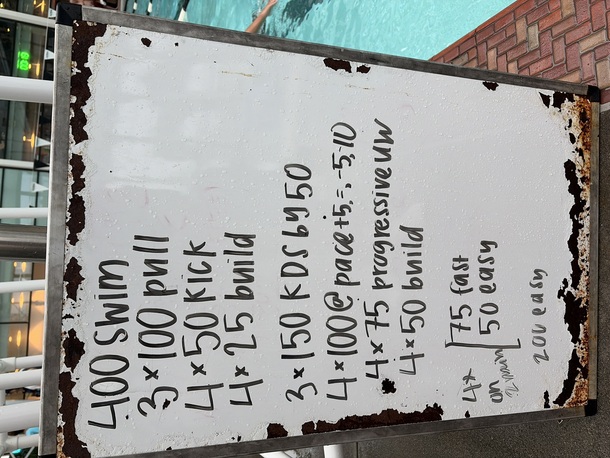 400 SWIM
3 x 100 pull
4 x 50 KICK
4 x 25 build
3 x 150 K DS by 50
4 x 100 @ pace +5, =, -5, -10
4 x 75 progressive UW
4 x 50 build
4x [ 75 fast
on [ 50 easy
200 easy